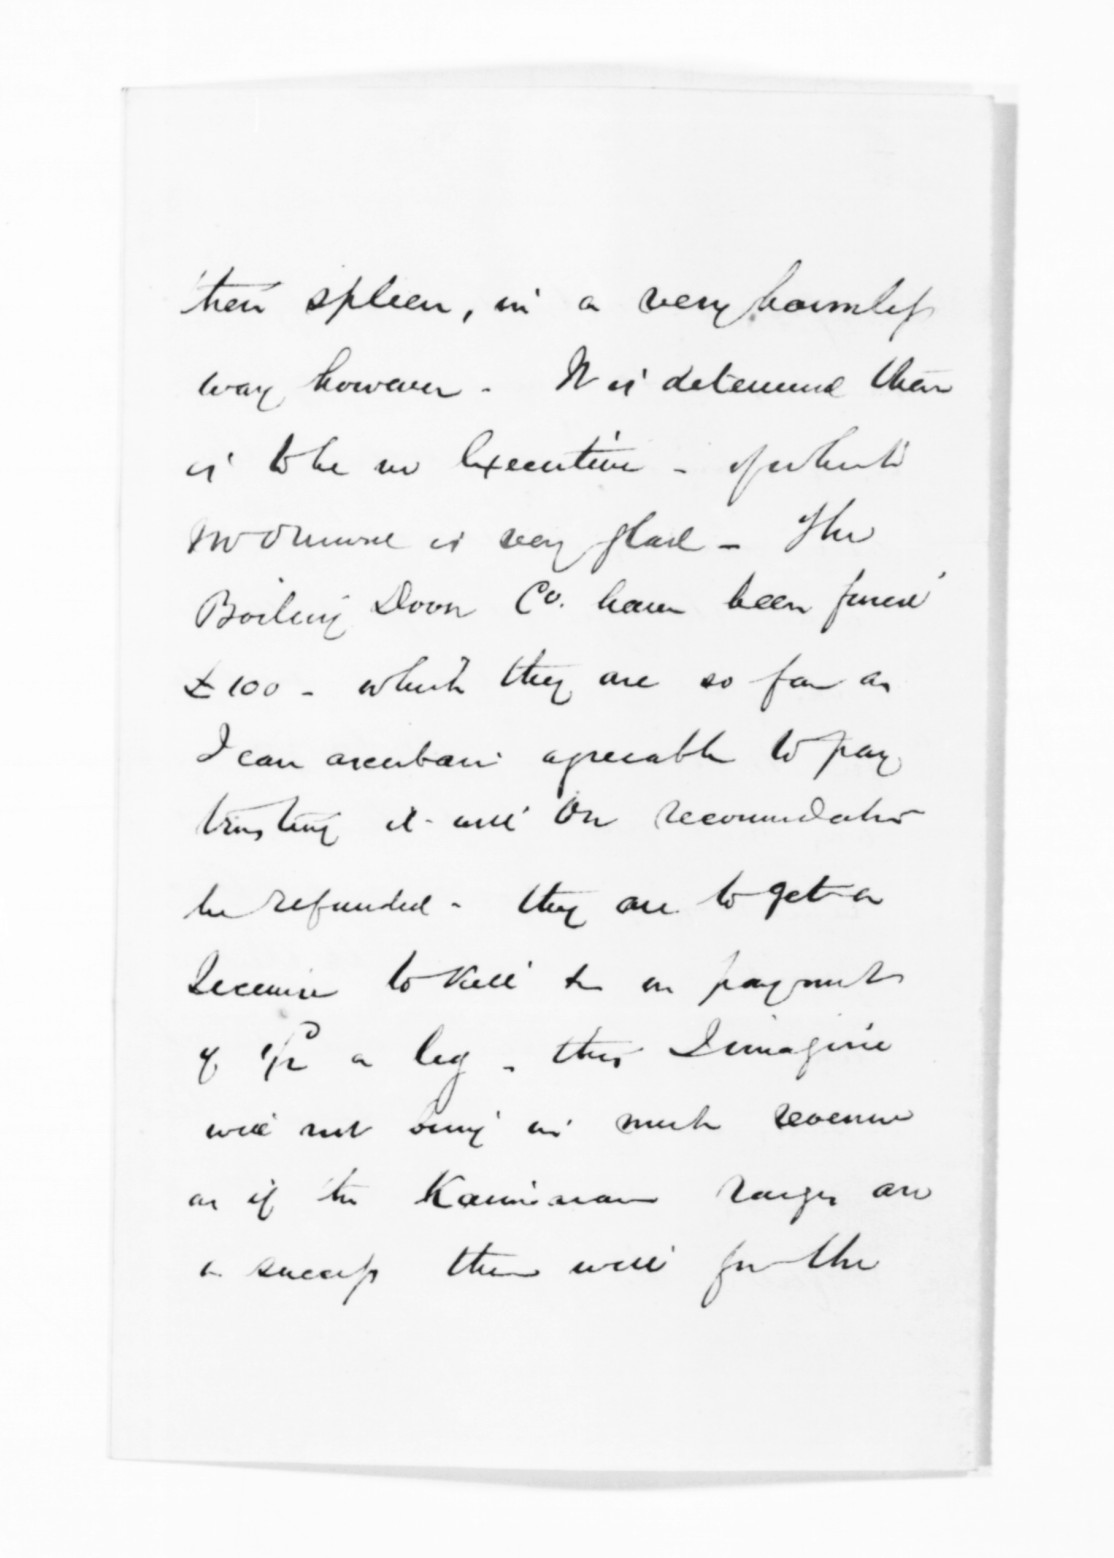 their spleen, in a very harmless
way however - It is determined there
is to be no Executive - of which
Mr Ormond is very glad - The
Boiling Down Co. have been fined
£100 - which they are so far as
I can ascertain agreeable to pay
trusting it will on recommendation
be refunded - they are to get a
License to kill on payment
of a leg - this I imagine
will not bring in much revenue
as if the Kaimanawa ranges are
a success there will for the